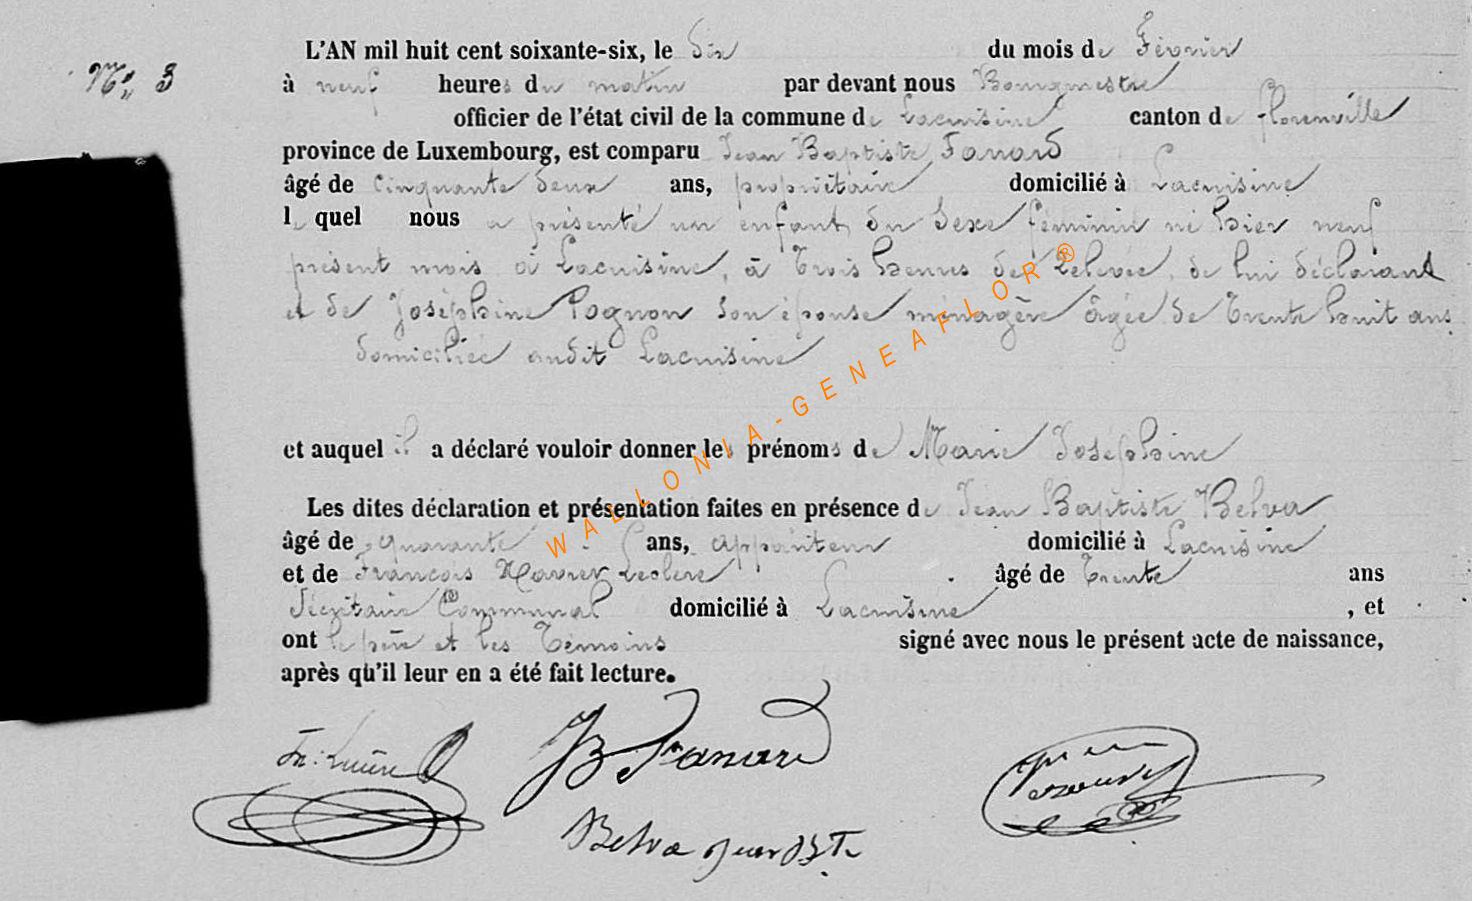 N° 3
L'AN mil huit cent soixante-six, le Six du mois de Février
à neuf heures du matin par devant nous Bourgmestre
officier de l'état civil de la commune de Lacuisine canton de florenville
province de Luxembourg, est comparu Jean Baptiste Fanard
âgé de Cinquante deux ans, propriétaire domicilié à Lacuisine
le quel nous a présenté un enfant du Sexe féminin né hier neuf
présent mois à Lacuisine, à Trois heures de Relevée, de lui déclarant
et de Joséphine Pognon Son épouse ménagère âgée de Trente huit ans
domiciliée audit Lacuisine
et auquel il a déclaré vouloir donner les prénoms de Marie Joséphine
Les dites déclaration et présentation faites en présence de Jean Baptiste Belva
âgé de quarante ans, appariteur domicilié à Lacuisine
et de François Xavier Leclere âgé de Trente ans
Sécrétaire Communal domicilié à Lacuisine, et
ont le père et les Témoins signé avec nous le présent acte de naissance,
après qu'il leur en a été fait lecture.
JB Fanard
Belva jean Bte
WALLONIA-GENEAFLOR®